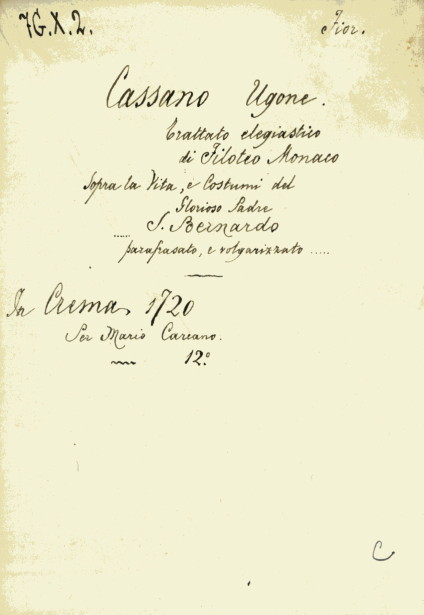 7G.X.2. Fior.
Cassano Ugone.
Trattato elegiastico
di Filoteo Monaco
sopra la Vita, e Costumi del
Glorioso Padre
S. Bernardo
..... parafrasato, e volgarizzato .....
In Crema, 1720
Per Mario Carcano.
12.º
C